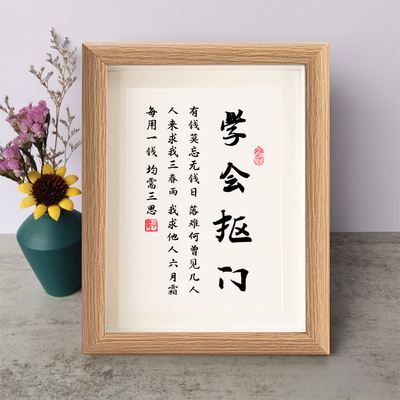 学会抠门
有钱莫忘无钱日 落难何曾见几人
人来求我三春雨 我求他人六月霜
每用一钱 均需三思